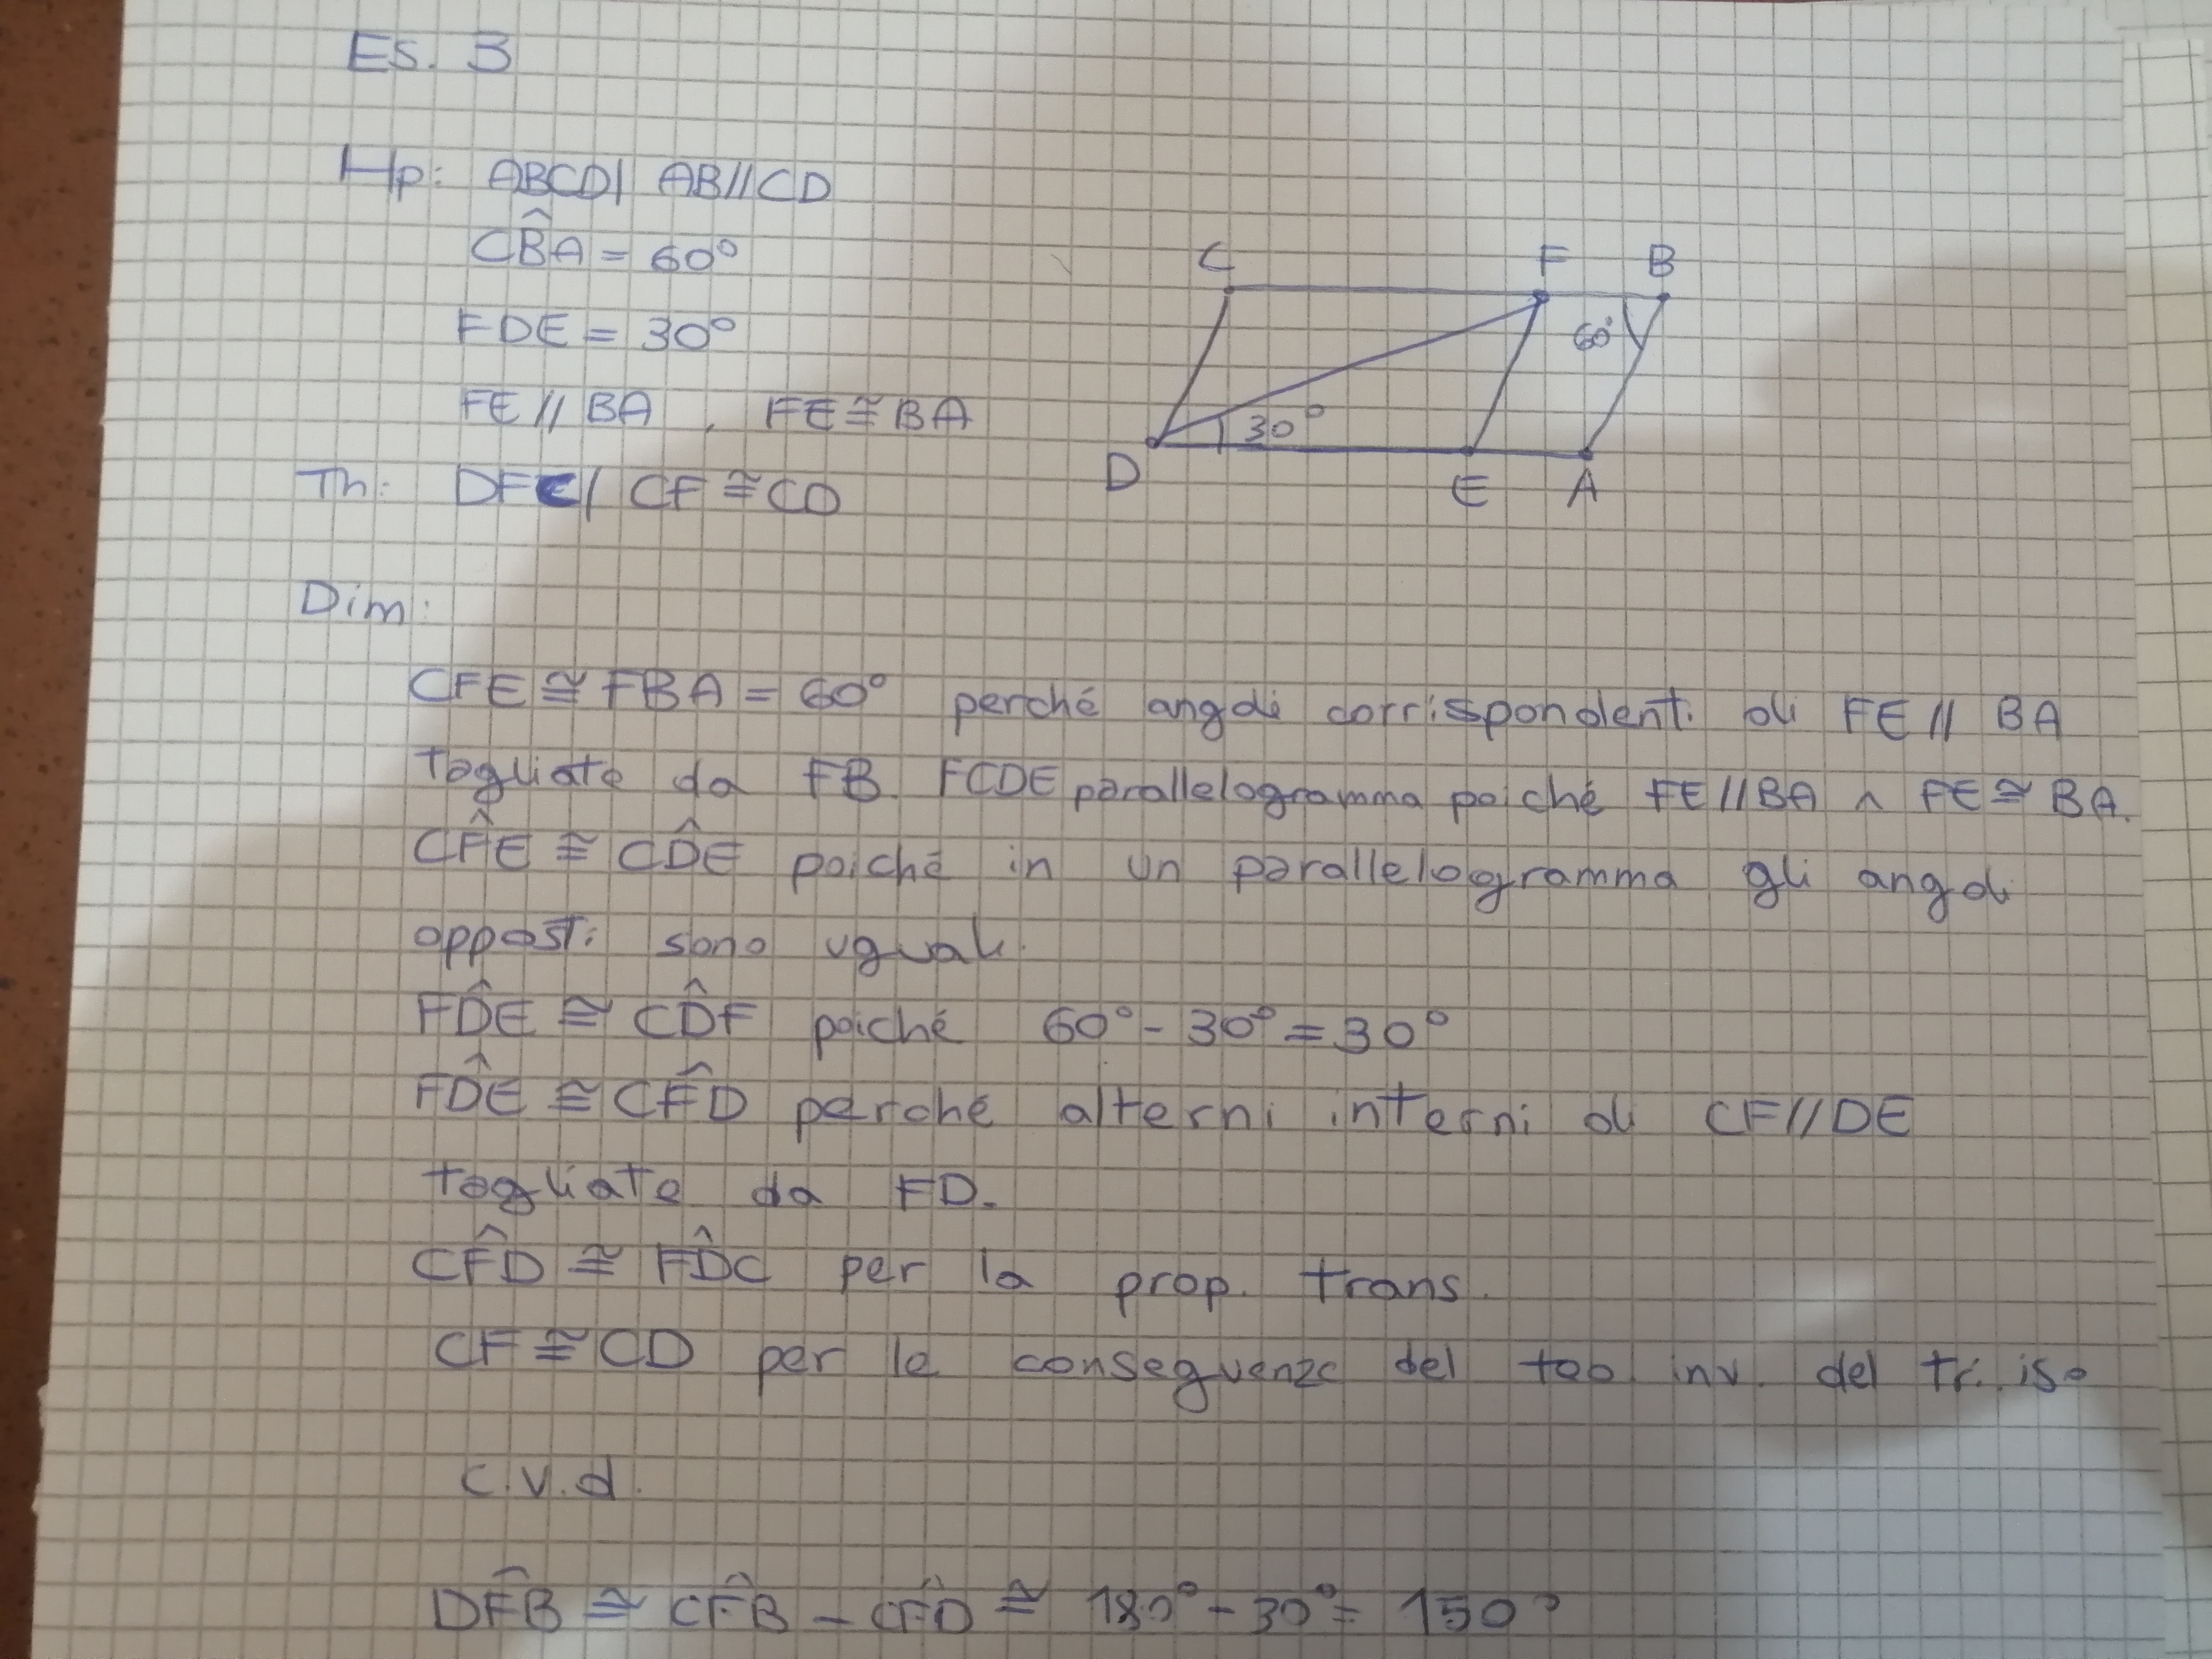 Es. 3
Hp: ABCD| AB//CD
CB̂A = 60°
FDE = 30°
FE // BA , FE ≅ BA
Th: DFC| CF ≅ CD
C F B
60°
30°
D E A
Dim:
CFE ≅ FBA = 60° perché angoli corrispondenti di FE // BA
tagliate da FB. FCDE parallelogramma poiché FE//BA ∧ FE ≅ BA.
CF̂E ≅ CD̂E poiché in un parallelogramma gli angoli
opposti sono uguali.
FD̂E ≅ CD̂F poiché 60° - 30° = 30°
FD̂E ≅ CF̂D perché alterni interni di CF//DE
tagliate da FD.
CF̂D ≅ FD̂C per la prop. trans.
CF ≅ CD per le conseguenze del teo inv. del tr. iso
c.v.d.
DF̂B ≅ CF̂B - CF̂D ≅ 180° - 30° = 150°